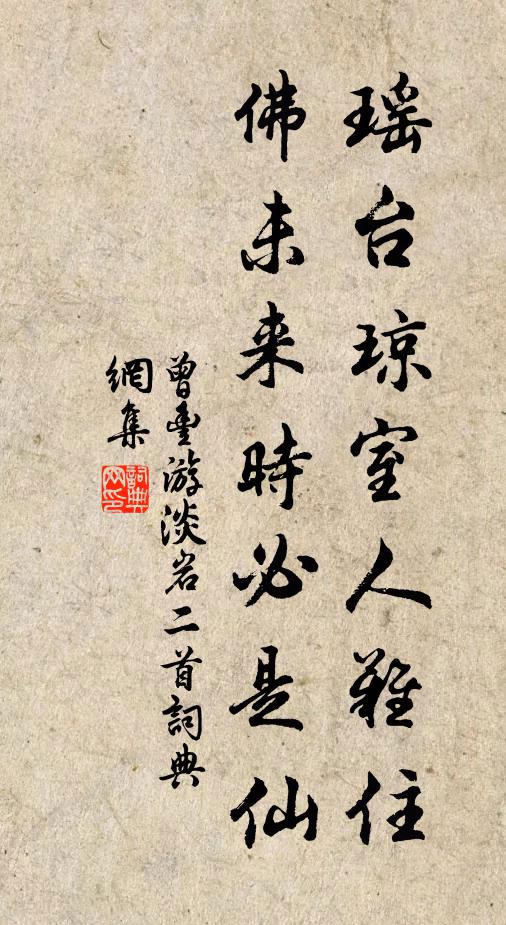 瑶台琼室人難住
佛未来時必是仙
曾豊游淡岩二首詞典
網集
詞典
网印